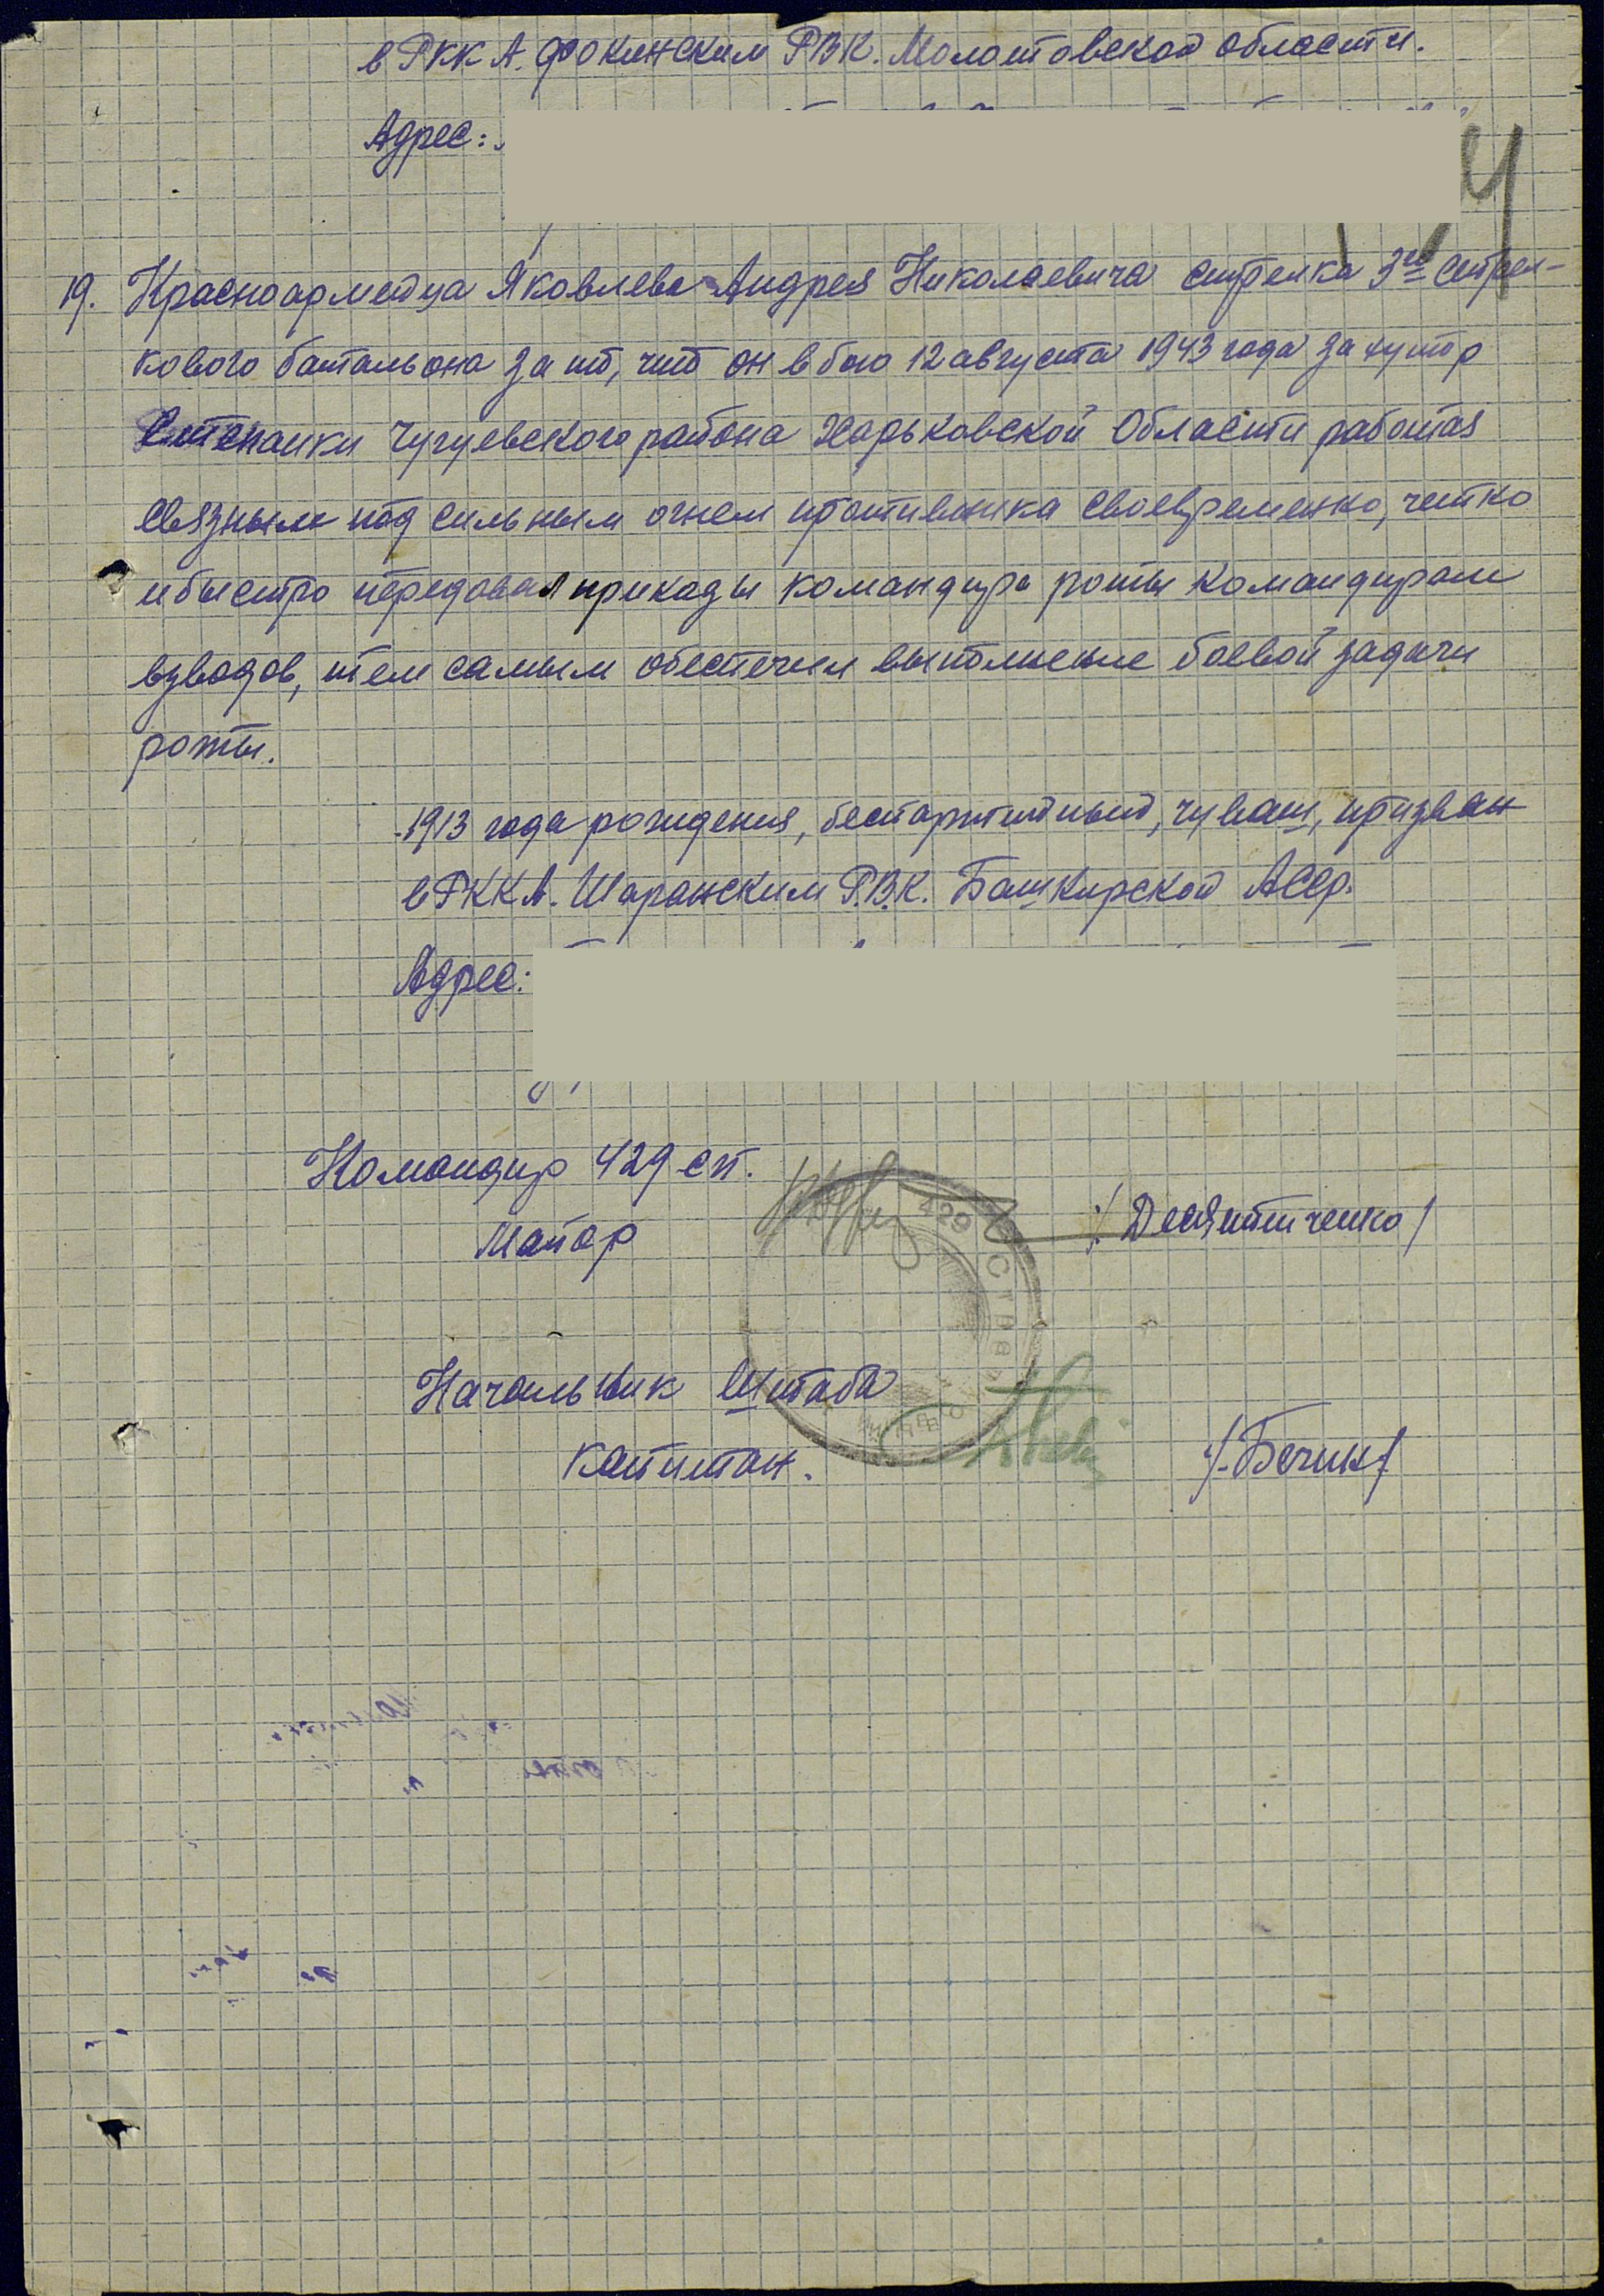 в РККА. Фокинским РВК. Молотовской области.
Адрес:
19. Красноармейца Яковлева Андрея Николаевича стрелка 3го стрел-
кового батальона за то, что он в бою 12 августа 1943 года за хутор
Степанки Чугуевского района Харьковской Области работая
связным под сильным огнем противника своевременно, четко
и быстро передавал приказы командира роты командирам
взводов, тем самым обеспечил выполнение боевой задачи
роты.
1913 года рождения, беспартийный, чуваш, призван
в РККА. Шаранским Р.В.К. Башкирской АССР.
Адрес:
Командир 429 сп.
Майор /Десятниченко/
429 СТРЕЛ
Начальник Штаба
капитан. /Бечин/